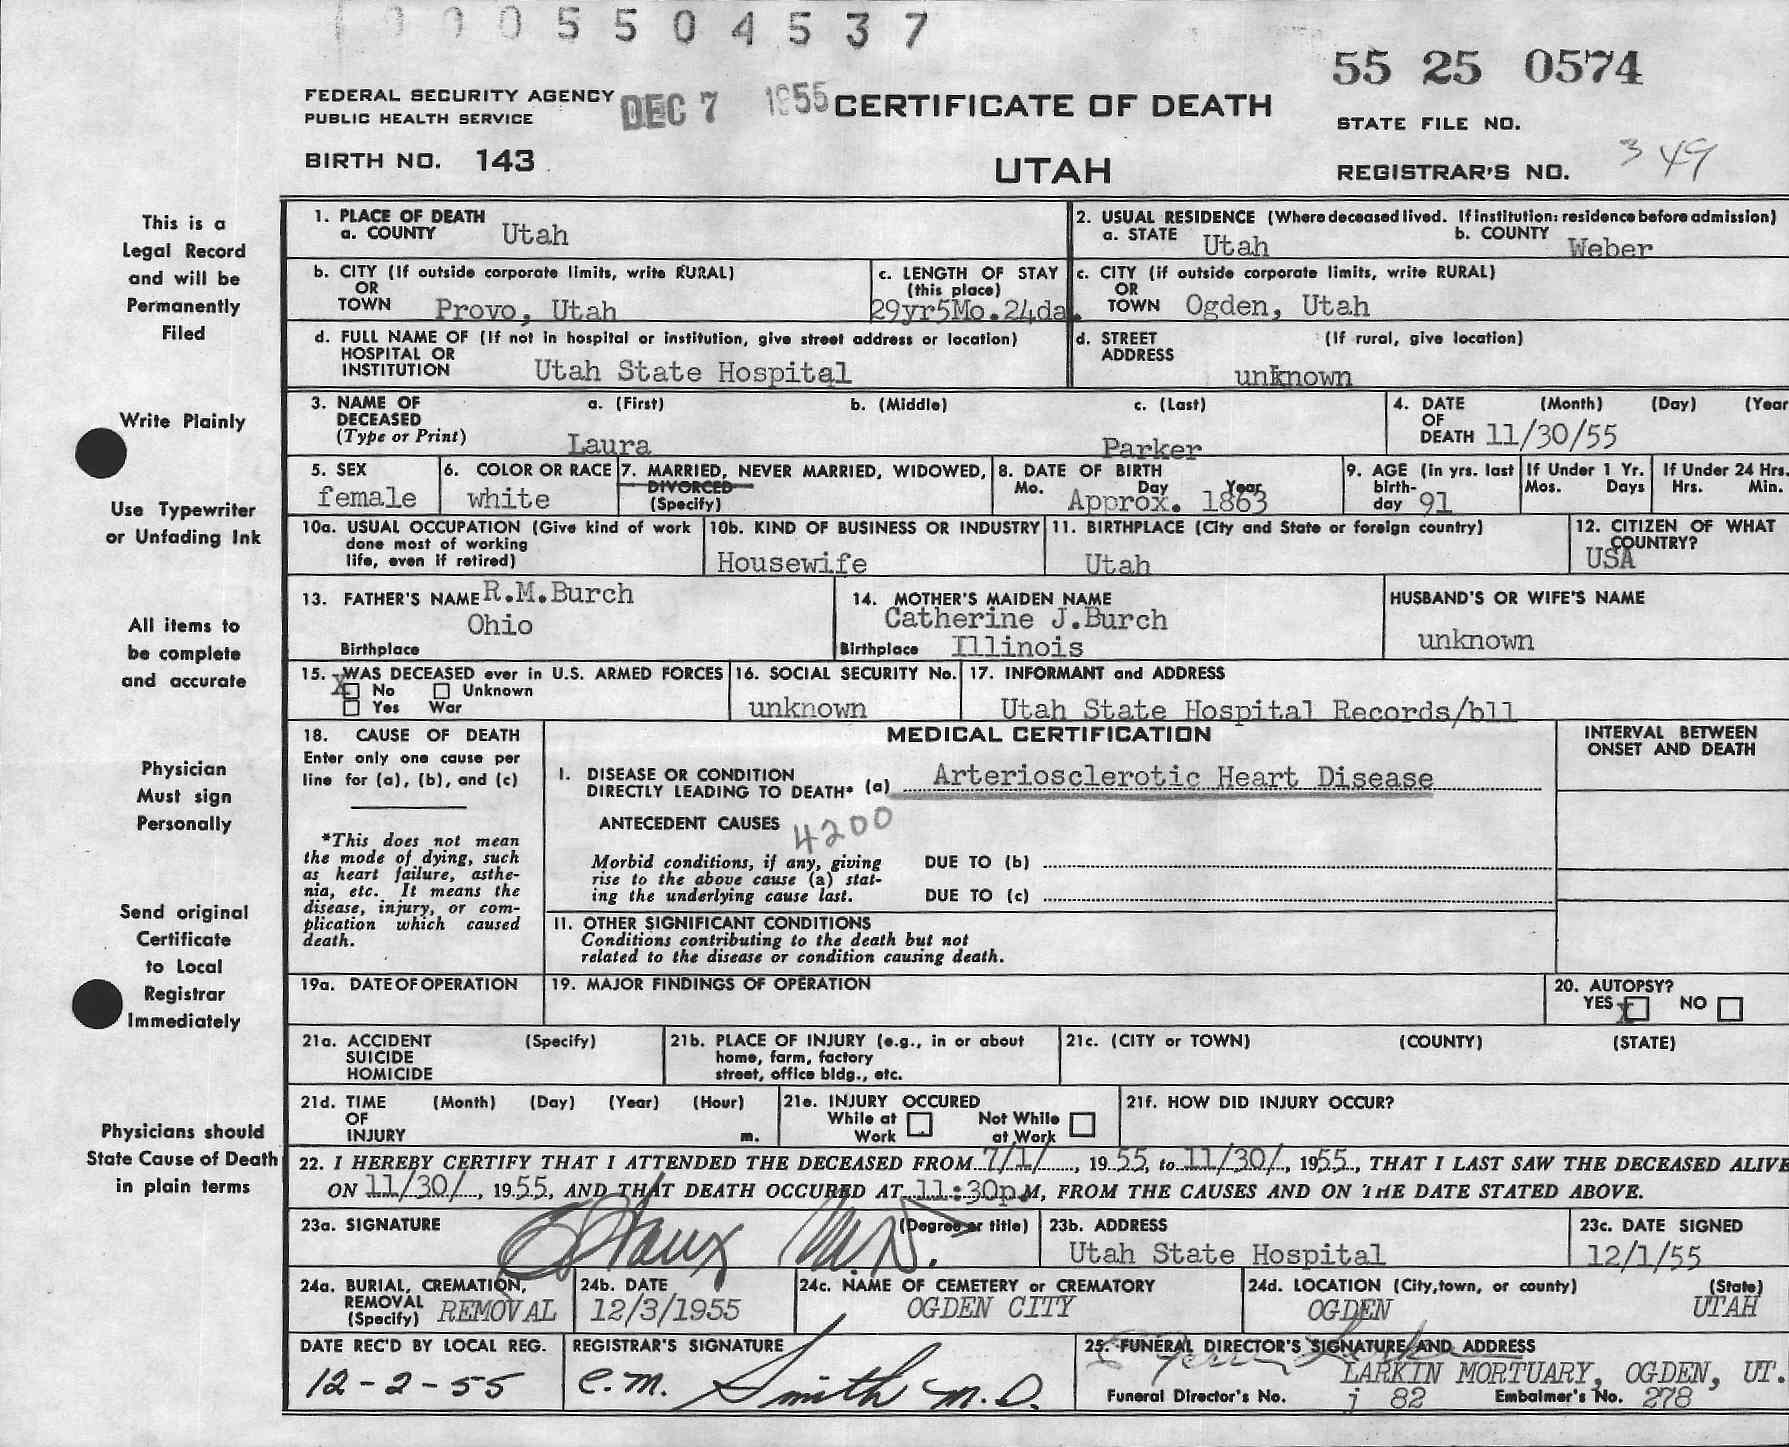 0 0 5 5 0 4 5 3 7
55 25 0574
FEDERAL SECURITY AGENCY
PUBLIC HEALTH SERVICE
DEC 7 1955
CERTIFICATE OF DEATH
STATE FILE NO.
BIRTH NO. 143
UTAH
REGISTRAR'S NO. 349
This is a
Legal Record
and will be
Permanently
Filed
Write Plainly
Use Typewriter
or Unfading Ink
All items to
be complete
and accurate
Physician
Must sign
Personally
Send original
Certificate
to Local
Registrar
Immediately
Physicians should
State Cause of Death
in plain terms
1. PLACE OF DEATH
a. COUNTY Utah
2. USUAL RESIDENCE (Where deceased lived. If institution: residence before admission)
a. STATE Utah b. COUNTY Weber
b. CITY (If outside corporate limits, write RURAL)
OR
TOWN Provo, Utah
c. LENGTH OF STAY
(this place)
29yr5Mo.24da.
c. CITY (if outside corporate limits, write RURAL)
OR
TOWN Ogden, Utah
d. FULL NAME OF (If not in hospital or institution, give street address or location)
HOSPITAL OR
INSTITUTION Utah State Hospital
d. STREET (If rural, give location)
ADDRESS
unknown
3. NAME OF a. (First) b. (Middle) c. (Last)
DECEASED
(Type or Print) Laura Parker
4. DATE (Month) (Day) (Year
OF
DEATH 11/30/55
5. SEX
female
6. COLOR OR RACE
white
7. MARRIED, NEVER MARRIED, WIDOWED,
DIVORCED
(Specify)
8. DATE OF BIRTH
Mo. Day Year
Approx. 1863
9. AGE (in yrs. last
birth-
day 91
If Under 1 Yr.
Mos. Days
If Under 24 Hrs.
Hrs. Min.
10a. USUAL OCCUPATION (Give kind of work
done most of working
life, even if retired)
10b. KIND OF BUSINESS OR INDUSTRY
Housewife
11. BIRTHPLACE (City and State or foreign country)
Utah
12. CITIZEN OF WHAT
COUNTRY?
USA
13. FATHER'S NAME R.M.Burch
Ohio
Birthplace
14. MOTHER'S MAIDEN NAME
Catherine J.Burch
Birthplace Illinois
HUSBAND'S OR WIFE'S NAME
unknown
15. WAS DECEASED ever in U.S. ARMED FORCES
X No Unknown
Yes War
16. SOCIAL SECURITY No.
unknown
17. INFORMANT and ADDRESS
Utah State Hospital Records/bll
18. CAUSE OF DEATH
Enter only one cause per
line for (a), (b), and (c)
*This does not mean
the mode of dying, such
as heart failure, asthe-
nia, etc. It means the
disease, injury, or com-
plication which caused
death.
MEDICAL CERTIFICATION
INTERVAL BETWEEN
ONSET AND DEATH
I. DISEASE OR CONDITION
DIRECTLY LEADING TO DEATH* (a) Arteriosclerotic Heart Disease
ANTECEDENT CAUSES 4200
Morbid conditions, if any, giving
rise to the above cause (a) stat-
ing the underlying cause last.
DUE TO (b)
DUE TO (c)
II. OTHER SIGNIFICANT CONDITIONS
Conditions contributing to the death but not
related to the disease or condition causing death.
19a. DATE OF OPERATION
19. MAJOR FINDINGS OF OPERATION
20. AUTOPSY?
YES X NO
21a. ACCIDENT (Specify)
SUICIDE
HOMICIDE
21b. PLACE OF INJURY (e.g., in or about
home, farm, factory
street, office bldg., etc.
21c. (CITY or TOWN) (COUNTY) (STATE)
21d. TIME (Month) (Day) (Year) (Hour)
OF
INJURY m.
21e. INJURY OCCURED
While at Work Not While at Work
21f. HOW DID INJURY OCCUR?
22. I HEREBY CERTIFY THAT I ATTENDED THE DECEASED FROM 7/1/, 1955, to 11/30/, 1955, THAT I LAST SAW THE DECEASED ALIVE
ON 11/30/, 1955, AND THAT DEATH OCCURED AT 11:30p.M, FROM THE CAUSES AND ON THE DATE STATED ABOVE.
23a. SIGNATURE M.D. (Degree or title)
23b. ADDRESS
Utah State Hospital
23c. DATE SIGNED
12/1/55
24a. BURIAL, CREMATION,
REMOVAL
(Specify) REMOVAL
24b. DATE
12/3/1955
24c. NAME OF CEMETERY or CREMATORY
OGDEN CITY
24d. LOCATION (City, town, or county) (State)
OGDEN UTAH
DATE REC'D BY LOCAL REG.
12-2-55
REGISTRAR'S SIGNATURE
C.M. Smith M.D.
25. FUNERAL DIRECTOR'S SIGNATURE AND ADDRESS
LARKIN MORTUARY, OGDEN, UT.
Funeral Director's No. j 82 Embalmer's No. 278